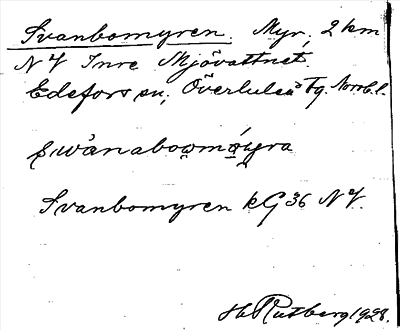 Svanbomyren. Myr, 2 km
NV Inre Mjövattnet.
Edefors sn, Överluleå Tg. Norrb. l.
swánabom ýra
Svanbomyren kG 36 NV.
H. Rutberg 1928.